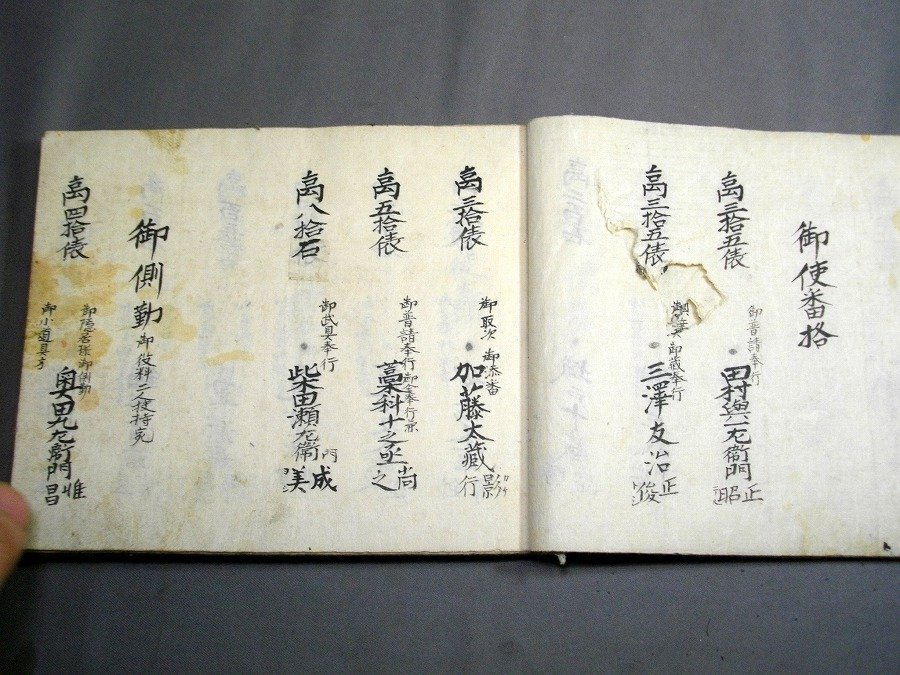 御使番格
高三拾五俵
御普請奉行
田村與六左衛門 正昭
高三拾五俵
御蔵奉行
三澤友治 正俊
高三拾俵
御取次 御添番
加藤太藏 影行
カゲ
高五拾俵
御普請奉行御金奉行兼
藁科十之丞 尚之
高八拾石
御武具奉行
柴田瀬左衛門 成美
御側勤 御役料二人扶持充
高四拾俵
御隠居様御側勤
御小道具方
奥田九左衛門 惟昌